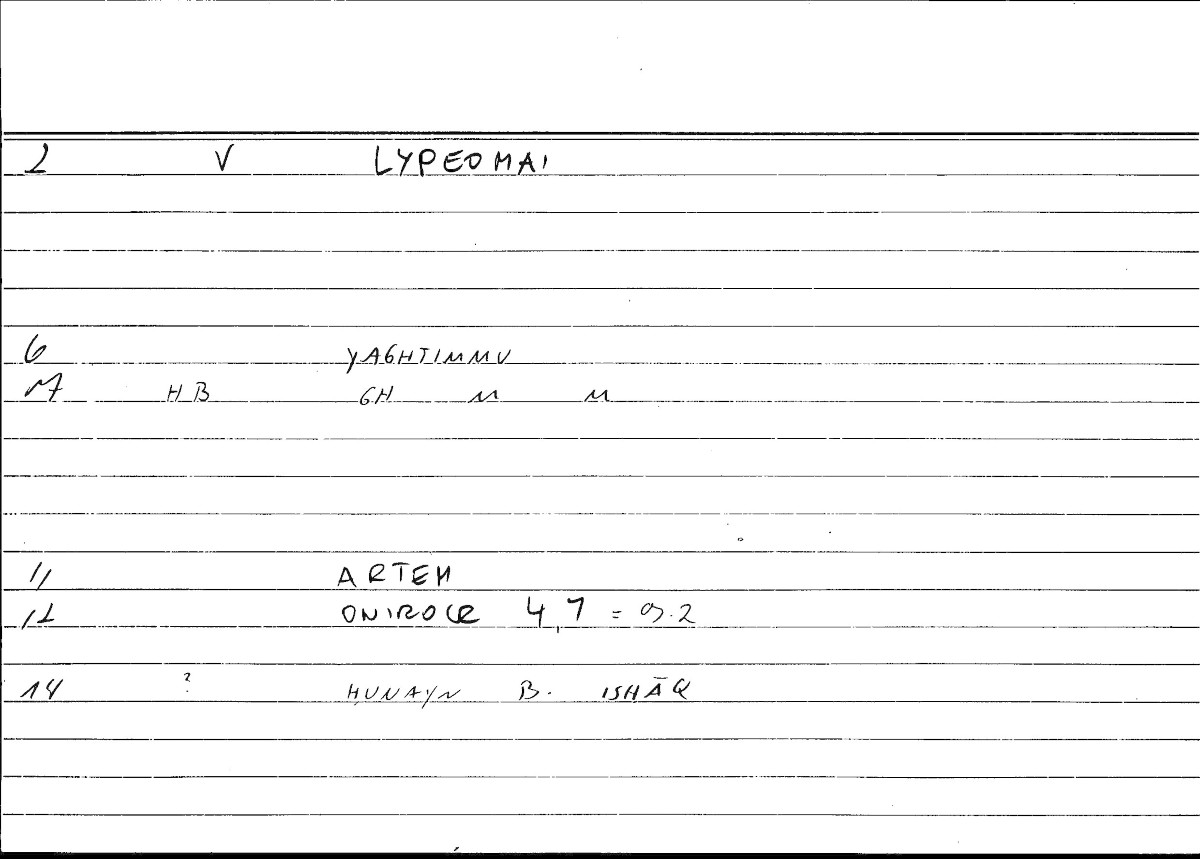 2 V LYPEOMAI
6 YAGHTIMMU
7 HB GH M M
11 ARTEM
12 ONIROCR 4,7 = 9.2
14 ? ḤUNAYN B. ISḤĀQ